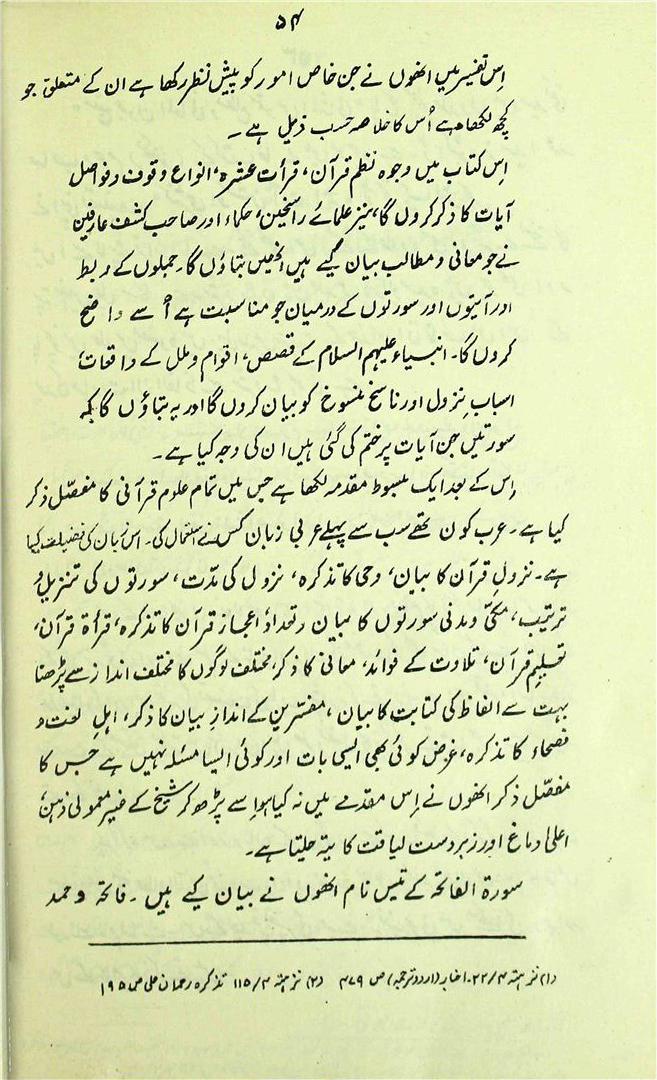 ۵۴
اِس تفسیر میں انھوں نے جن خاص امور کو پیش نظر رکھا ہے ان کے متعلق جو
کچھ لکھا ہے اُس کا خلاصہ حسب ذیل ہے۔
اِس کتاب میں وجوہ نظم قرآن، قرأت عشرہ، انواع وقوف و فواصل
آیات کا ذکر کروں گا، نیز علمائے راسخین، حکماء اور صاحب کشف عارفین
نے جو معانی و مطالب بیان کیے ہیں انھیں بتاؤں گا۔ جملوں کے ربط
اور آیتوں اور سورتوں کے درمیان جو مناسبت ہے اُسے واضح
کروں گا۔ انبیاء علیہم السلام کے قصص، اقوام و ملل کے واقعات،
اسباب نزول اور ناسخ منسوخ کو بیان کروں گا اور یہ بتاؤں گا کہ
سورتیں جن آیات پر ختم کی گئی ہیں ان کی وجہ کیا ہے۔
اِس کے بعد ایک مبسوط مقدمہ لکھا ہے جس میں تمام علوم قرآنی کا مفصّل ذکر
کیا ہے۔ عرب کون تھے سب سے پہلے عربی زبان کس نے استعمال کی۔ اس زبان کی فضیلت کیا
ہے۔ نزولِ قرآن کا بیان، وحی کا تذکرہ، نزول کی مدّت، سورتوں کی تنزیل و
ترتیب، مکیّ و مدنی سورتوں کا بیان و تعداد اعجاز قرآن کا تذکرہ، قرأۃ قرآن،
تعلیم قرآن، تلاوت کے فوائد، معانی کا ذکر، مختلف لوگوں کا مختلف انداز سے پڑھنا
بہت سے الفاظ کی کتابت کا بیان، مفسّرین کے اندازِ بیان کا ذکر، اہلِ لغت و
فصحاء کا تذکرہ، غرض کوئی بھی ایسی بات اور کوئی ایسا مسئلہ نہیں ہے جس کا
مفصّل ذکر انھوں نے اِس مقدمے میں نہ کیا ہو اِسے پڑھ کر شیخ کے غیر معمولی ذہن،
اعلیٰ دماغ اور زبردست لیاقت کا پتہ چلتا ہے۔
سورۃ الفاتحہ کے تیس نام انھوں نے بیان کیے ہیں۔ فاتحہ و حمد
(۱) نزہتہ ۴/۲۲۔ اخبار (اردو ترجمہ) ص ۴۷۹ (۲) نزہتہ ۴/۱۱۵ تذکرہ رحمان علی ص ۱۹۵